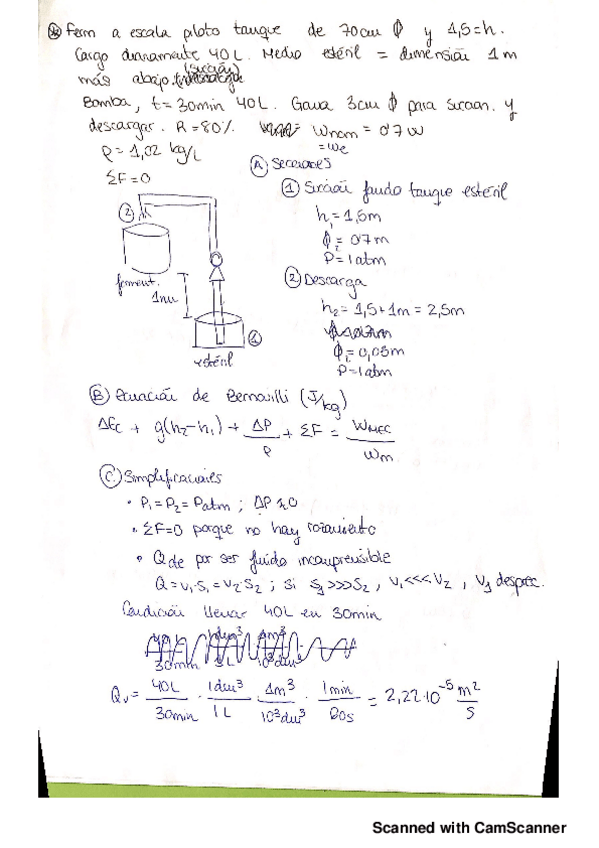 Ferm a escala piloto tanque de 70cm ϕ y 1,5=h.
Cargo diariamente 40L. Medio estéril = dimensión 1m
(succión)
más abajo
Bomba, t=30min 40L. Goma 3cm ϕ para succion. y
descargar. R=80%. Wnom = 0'7W
=We
ρ=1,02 kg/L
ΣF=0
Ⓐ Secciones
① Succión fondo tanque estéril
h₁=1,5m
ϕ=0'7m
P=1atm
② Descarga
h₂=1,5+1m=2,5m
ϕ=0,03m
P=1atm
②
ferment.
1m
①
estéril
Ⓑ Ecuación de Bernouilli (J/kg)
ΔEc + g(h₂-h₁) + ΔP/ρ + ΣF = WMEC/Wm
Ⓒ Simplificaciones
• P₁=P₂=Patm ; ΔP≈0
• ΣF=0 porque no hay rozamiento
• Q de por ser fluido incompresible
Q=v₁·S₁=v₂·S₂ ; si S₁>>>S₂, v₁<<<v₂, v₁ desprec.
Condición llenar 40L en 30min
Qᵥ = 40L/30min · 1dm³/1L · 1m³/10³dm³ · 1min/60s = 2,22·10⁻⁵ m²/s
Scanned with CamScanner